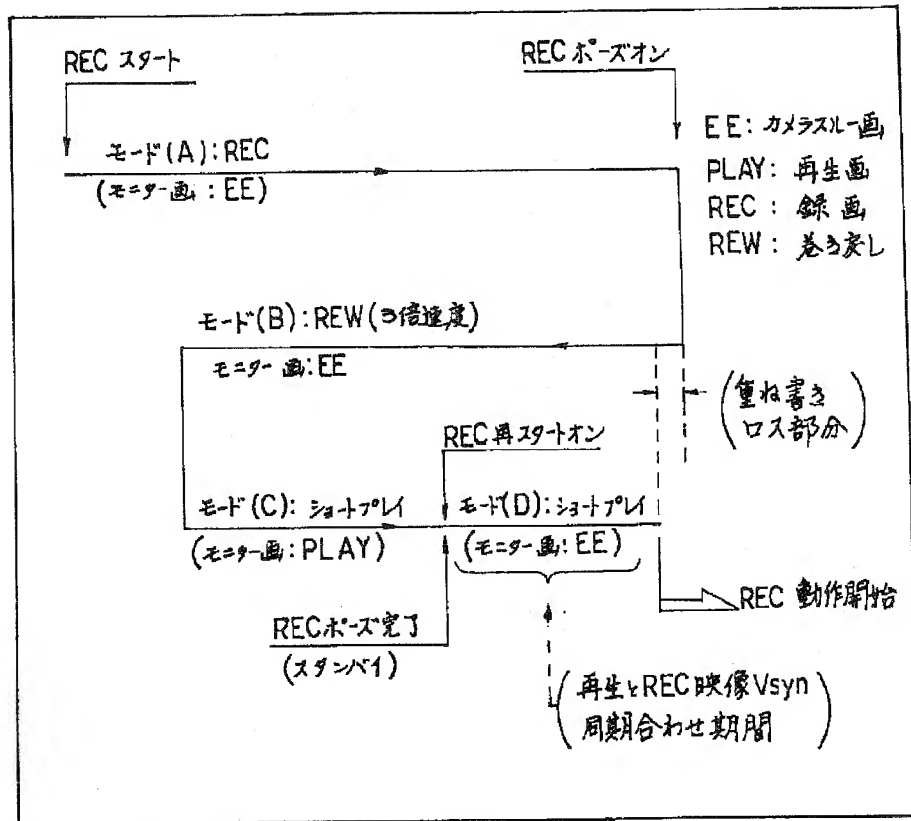 REC スタート
REC ポーズオン
EE: カメラスルー画
PLAY: 再生画
REC: 録画
REW: 巻き戻し
モード(A):REC
(モニター画:EE)
モード(B):REW(3倍速度)
モニター画:EE
(重ね書き
ロス部分)
REC再スタートオン
モード(C):ショートプレイ
(モニター画:PLAY)
モード(D):ショートプレイ
(モニター画:EE)
REC 動作開始
RECポーズ完了
(スタンバイ)
(再生とREC映像Vsyn
同期合わせ期間)